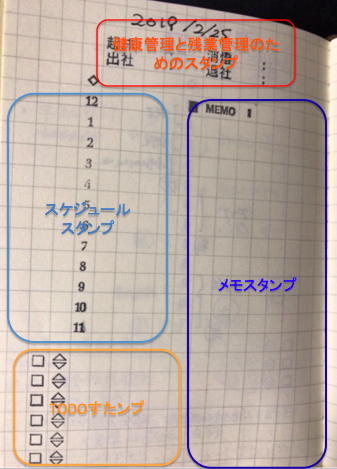 2019/2/25
健康管理と残業管理のた
めのスタンプ
出社
退社 :
12
MEMO
1
2
3
4
5
スケジュール
6
スタンプ
7
8
9
メモスタンプ
10
11
TODOすたンプ